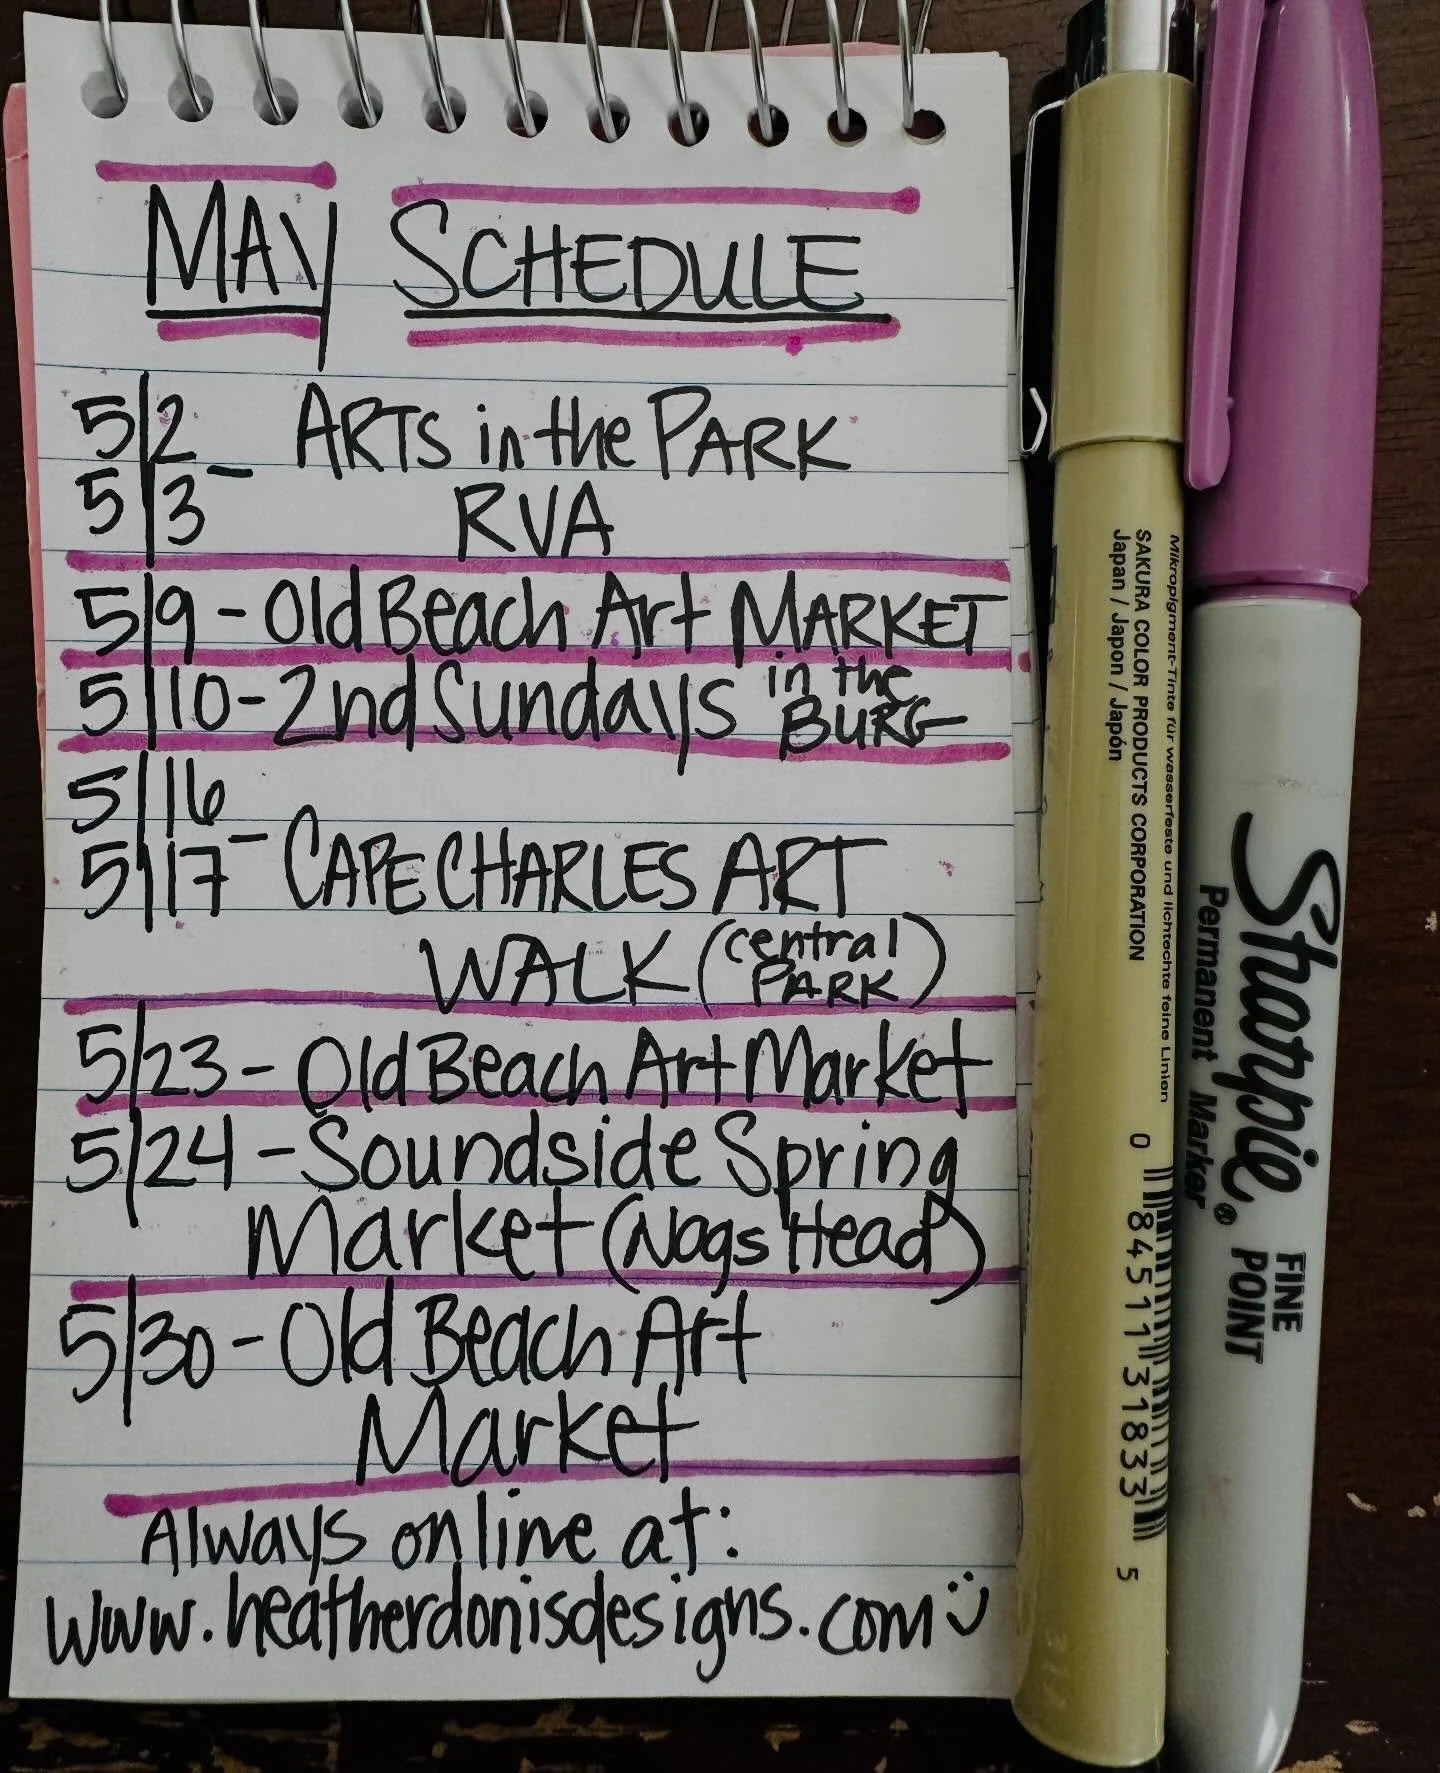 MAY SCHEDULE
5/2 - ARTS in the PARK
5/3 RVA
5/9 - Old Beach Art MARKET
5/10 - 2nd Sundays in the BURG
5/16
5/17 - CAPE CHARLES ART
WALK (central PARK)
5/23 - Old Beach Art Market
5/24 - Soundside Spring
Market (Nags Head)
5/30 - Old Beach Art
Market
Always online at:
www.heatherdonisdesigns.com
Mikropigment-Tinte für wasserfeste und lichtechte feine Linien
SAKURA COLOR PRODUCTS CORPORATION
Japan / Japon / Japón
0 84511 31833 5
Sharpie®
Permanent Marker
FINE
POINT